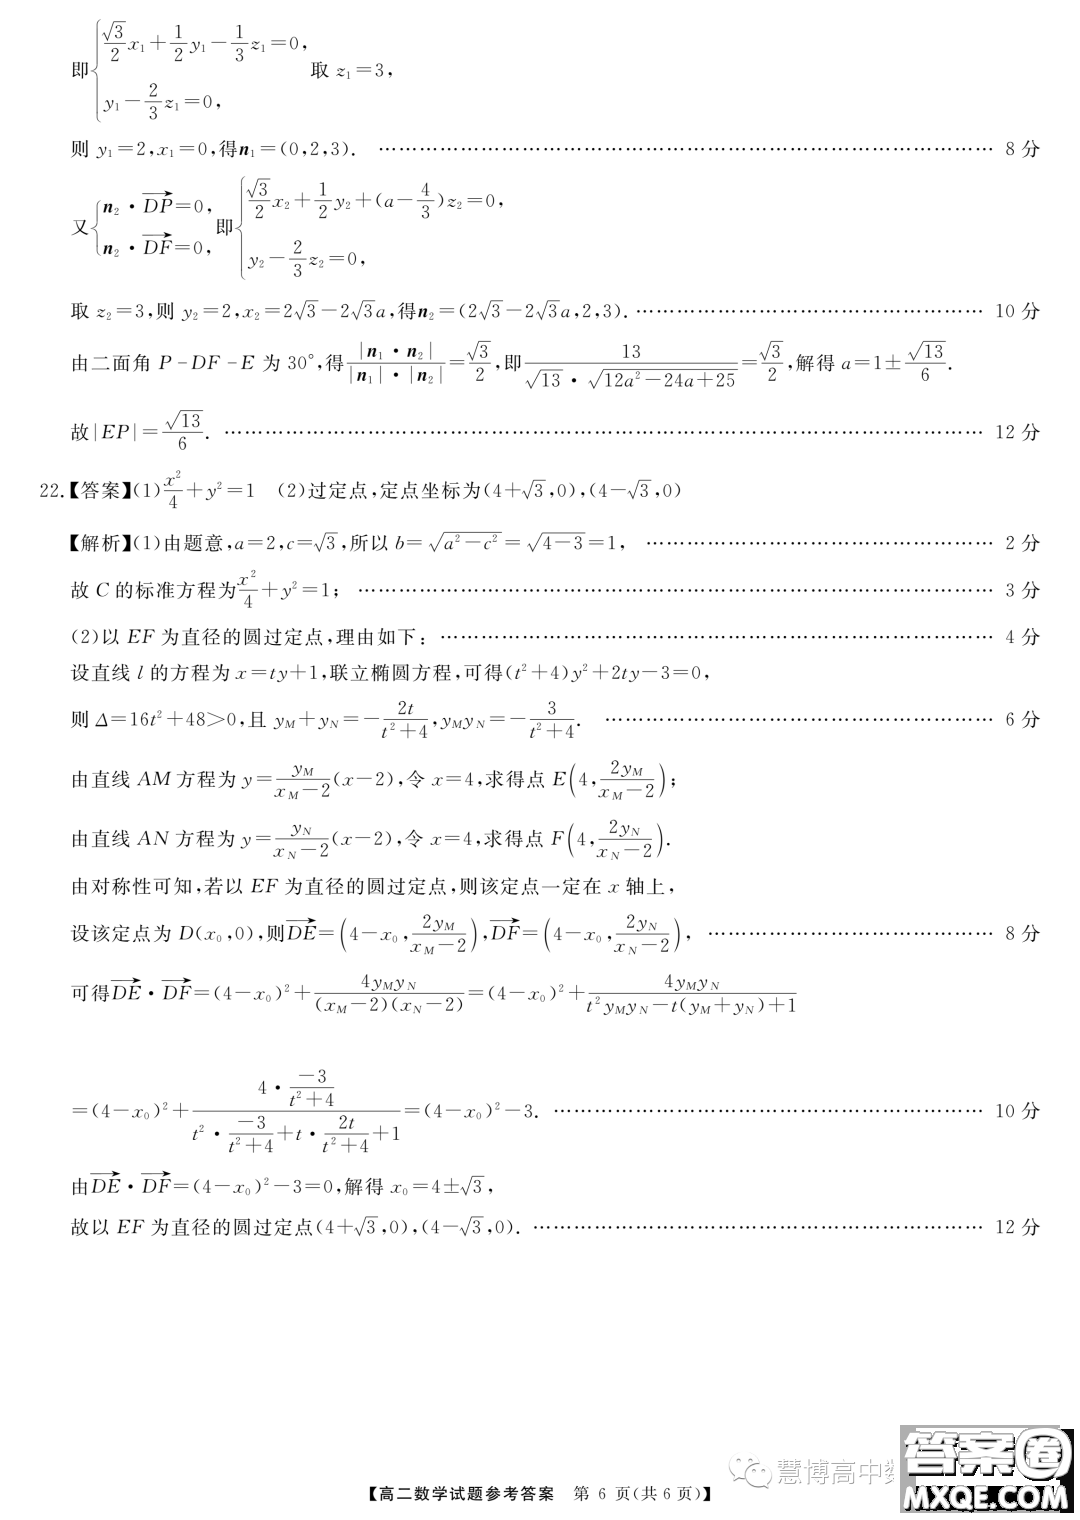 即{√3/2 x₁+1/2 y₁−1/3 z₁=0, y₁−2/3 z₁=0, 取 z₁=3,
则 y₁=2,x₁=0,得n₁=(0,2,3). ………… 8 分
又{n₂·DP→=0, n₂·DF→=0, 即{√3/2 x₂+1/2 y₂+(a−4/3)z₂=0, y₂−2/3 z₂=0,
取 z₂=3,则 y₂=2,x₂=2√3−2√3a,得n₂=(2√3−2√3a,2,3). ………… 10 分
由二面角 P−DF−E 为 30°,得|n₁·n₂|/(|n₁|·|n₂|)=√3/2,即 13/(√13·√(12a²−24a+25))=√3/2,解得 a=1±√13/6.
故|EP|=√13/6. ………… 12 分
22.【答案】(1)x²/4+y²=1 (2)过定点,定点坐标为(4+√3,0),(4−√3,0)
【解析】(1)由题意,a=2,c=√3,所以 b=√(a²−c²)=√(4−3)=1, ………… 2 分
故 C 的标准方程为x²/4+y²=1; ………… 3 分
(2)以 EF 为直径的圆过定点,理由如下: ………… 4 分
设直线 l 的方程为 x=ty+1,联立椭圆方程,可得(t²+4)y²+2ty−3=0,
则 Δ=16t²+48>0,且 y_M+y_N=−2t/(t²+4),y_My_N=−3/(t²+4). ………… 6 分
由直线 AM 方程为 y=y_M/(x_M−2)(x−2),令 x=4,求得点 E(4,2y_M/(x_M−2));
由直线 AN 方程为 y=y_N/(x_N−2)(x−2),令 x=4,求得点 F(4,2y_N/(x_N−2)).
由对称性可知,若以 EF 为直径的圆过定点,则该定点一定在 x 轴上,
设该定点为 D(x₀,0),则DE→=(4−x₀,2y_M/(x_M−2)),DF→=(4−x₀,2y_N/(x_N−2)), ………… 8 分
可得DE→·DF→=(4−x₀)²+4y_My_N/((x_M−2)(x_N−2))=(4−x₀)²+4y_My_N/(t²y_My_N−t(y_M+y_N)+1)
=(4−x₀)²+(4·−3/(t²+4))/(t²·−3/(t²+4)+t·2t/(t²+4)+1)=(4−x₀)²−3. ………… 10 分
由DE→·DF→=(4−x₀)²−3=0,解得 x₀=4±√3,
故以 EF 为直径的圆过定点(4+√3,0),(4−√3,0). ………… 12 分
慧博高中数
答案圈
MXQE.COM
【高二数学试题参考答案 第 6 页(共 6 页)】